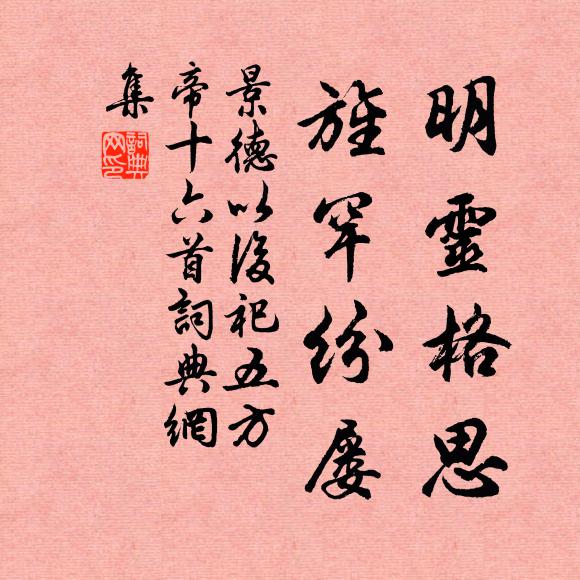 明靈格思
旌罕紛屢
景德以後祀五方
帝十六首詞典網
集
詞典網印